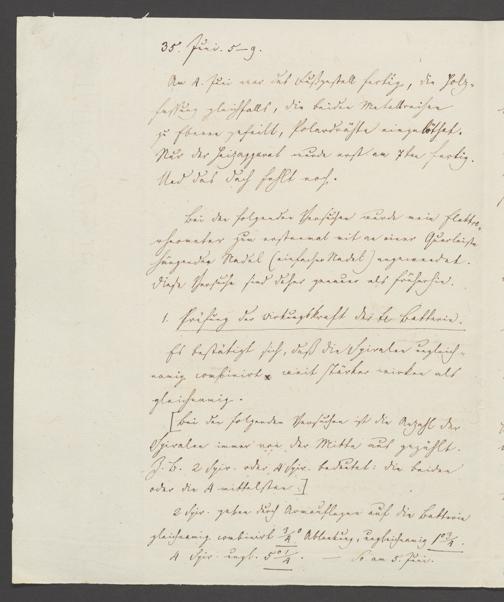 35. Juni. 5–9.
Am 4. Juni war das Fußgestell fertig, die Holz-
fassung gleichfalls, die beiden Metallreifen
zu Ebenen gefeilt, Polardrähte eingelöthet.
Nur der Heizapparat wurde erst am 7ten fertig.
Und das Dach fehlt noch.
Bei den folgenden Versuchen wurde mein Elektro-
rheometer zum erstenmal mit an einer Querleiste
hängender Nadel (einfacher Nadel) angewendet.
Diese Versuche sind daher genauer als früherhin.
1. Prüfung der Wirkungskraft der Batterie.
Es bestätigt sich, daß die Spiralen ungleich-
namig combinirt weit stärker wirken als
gleichnamig.
[Bei den folgenden Versuchen ist die Anzahl der
Spiralen immer von der Mitte aus gezählt.
Z. B. 2 Spir. oder 4 Spir. bedeutet: die beiden
oder die 4 mittelsten.]
2 Spir. geben durch Armauflegen auf die Batterie
gleichnamig combinirt 3/4° Ablenkung, ungleichnamig 1°3/4.
4 Spir. ungl. 5°1/4. — So am 5. Juni.